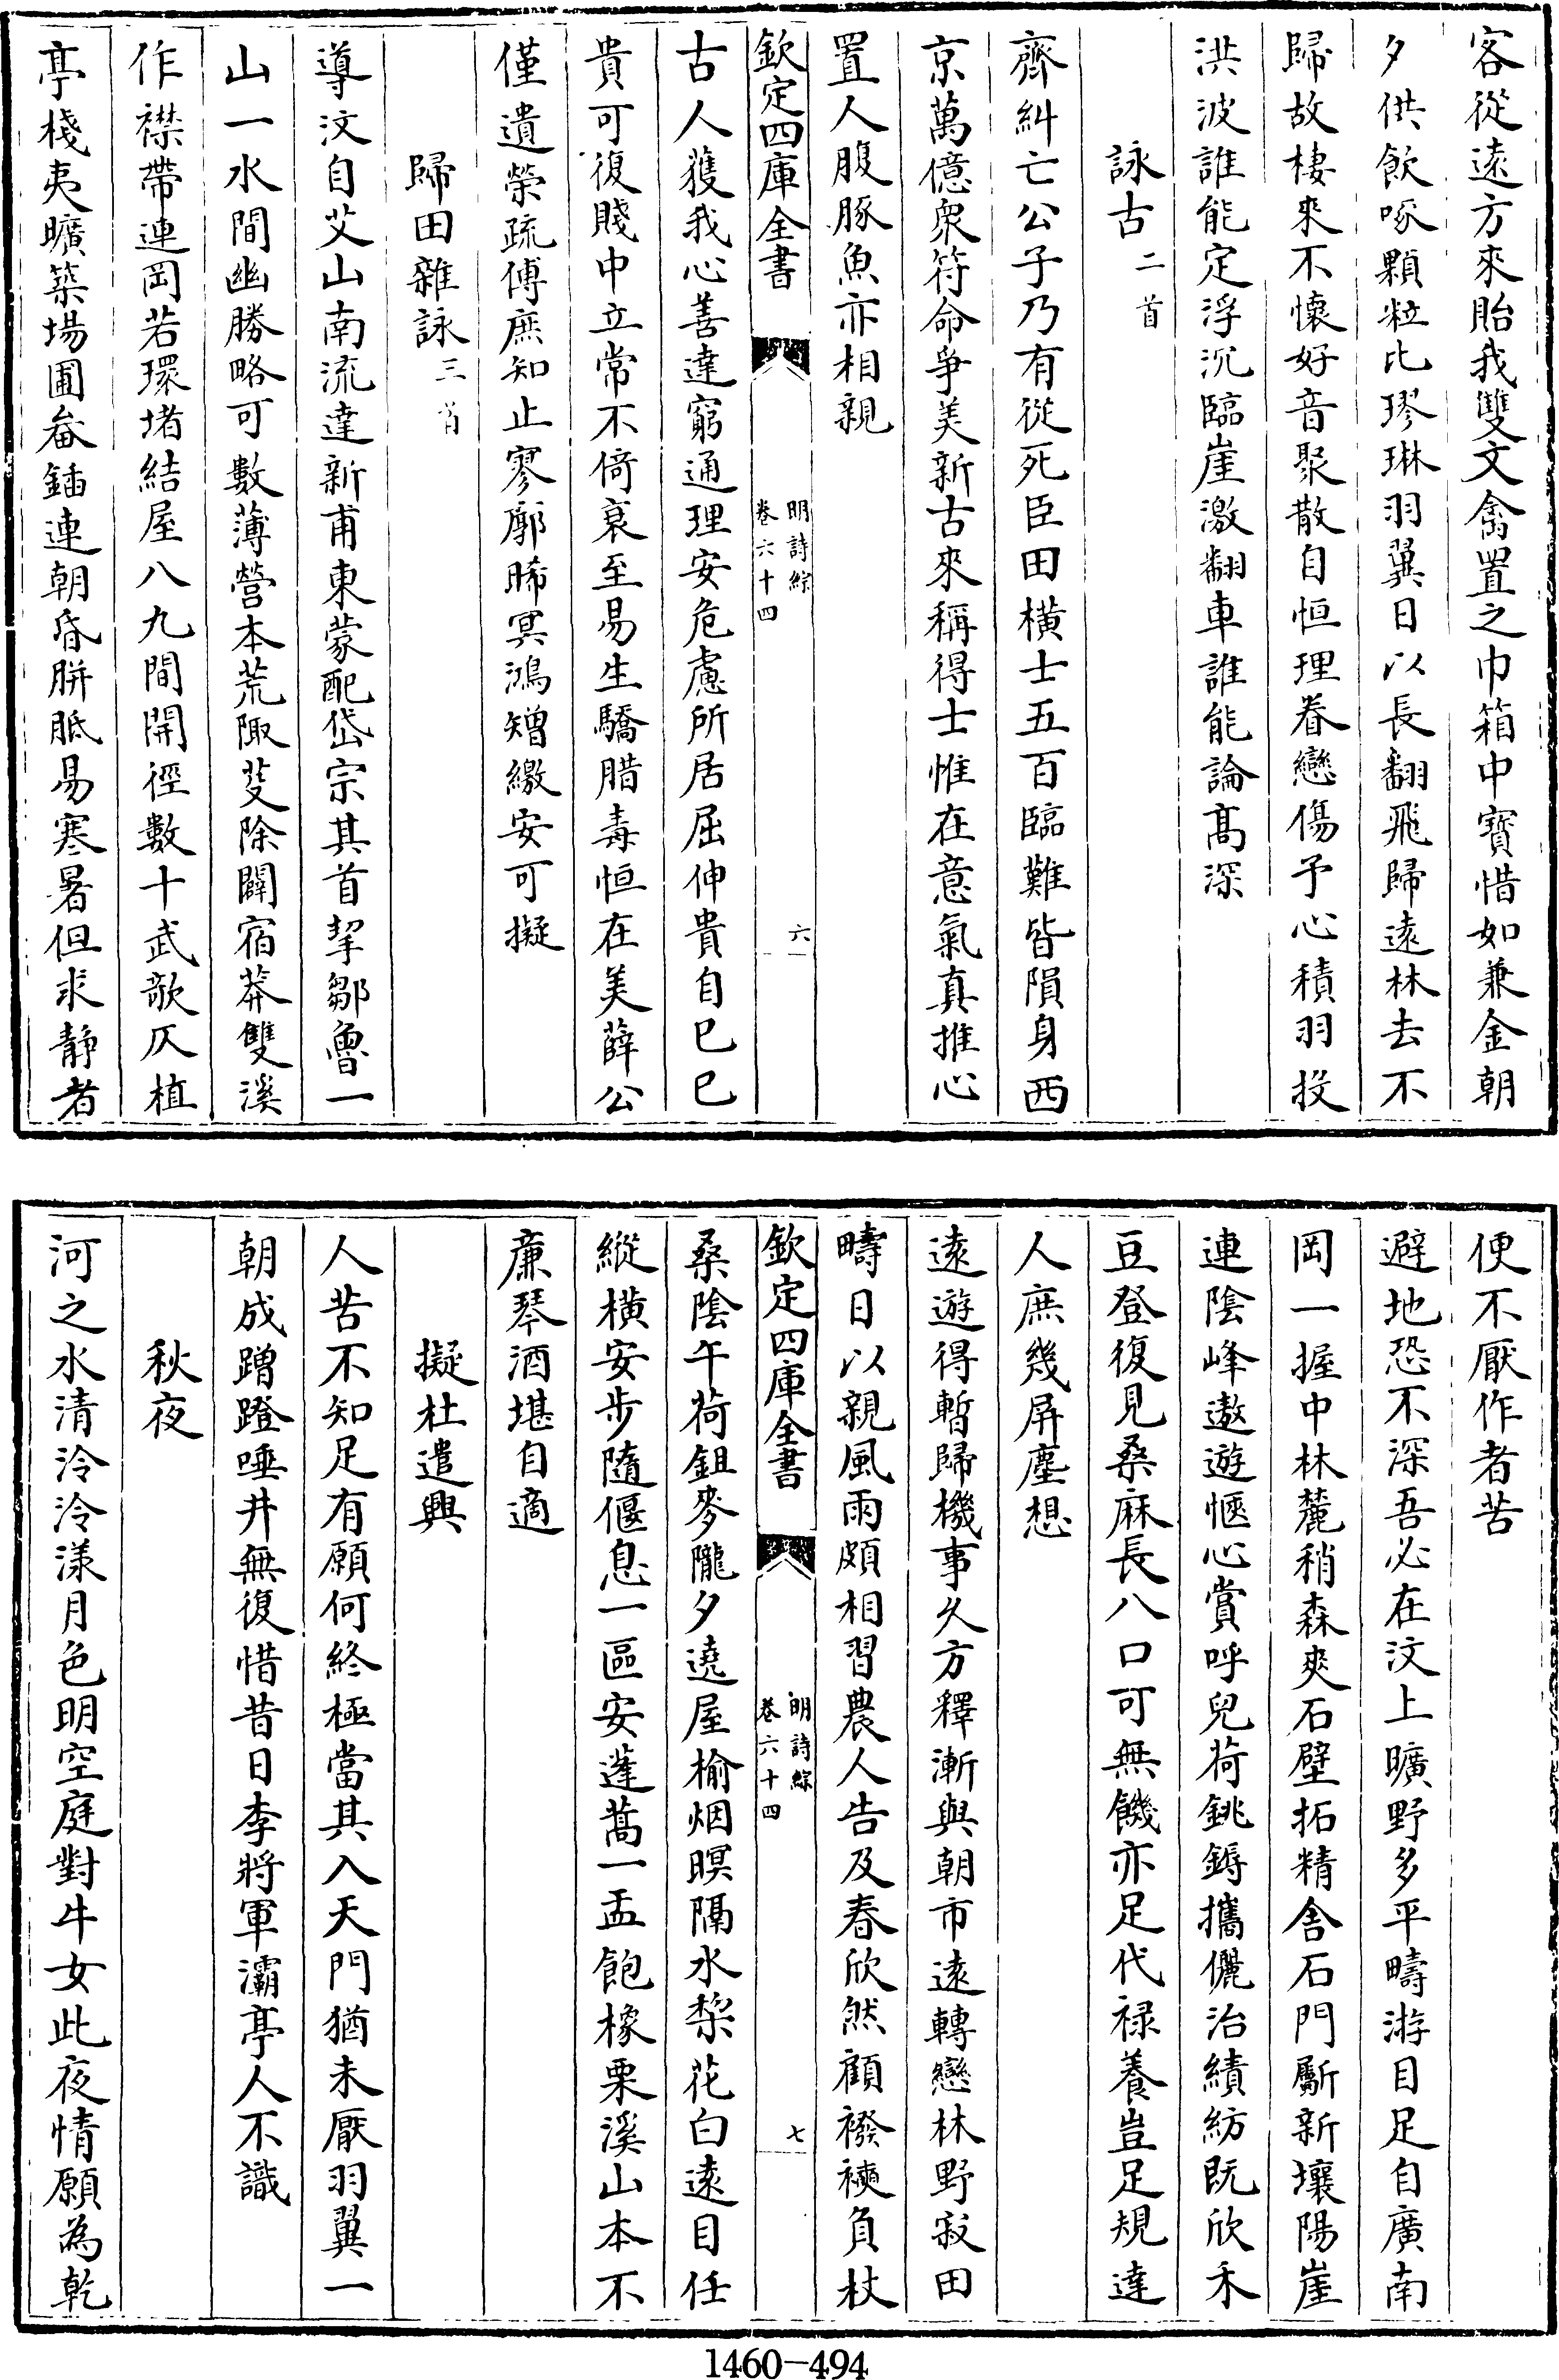 客從逺方來貽我雙文禽置之巾箱中寳惜如兼金朝
夕供飲啄顆粒比璆琳羽翼日以長翻飛歸逺林去不
歸故棲來不懷好音聚散自恒理眷戀傷予心積羽投
洪波誰能定浮沉臨崖激翻車誰能論髙深
詠古二首
齊糾亡公子乃有從死臣田横士五百臨難皆隕身西
京萬億衆符命爭美新古來稱得士惟在意氣真推心
置人腹豚魚亦相親
欽定四庫全書
明詩綜
卷六十四
六
古人獲我心善達窮通理安危慮所居屈伸貴自已已
貴可復賤中立常不倚衰至易生驕腊毒恒在美薛公
僅遺榮疏傅庶知止寥廓晞冥鴻矰繳安可擬
歸田雜詠三首
導汶自艾山南流達新甫東蒙配岱宗其首挈鄒魯一
山一水間幽勝略可數薄營本荒陬芟除闢宿莽雙溪
作襟帶連岡若環堵結屋八九間開徑數十武欹仄植
亭棧夷曠築塲圃畚鍤連朝昏胼胝易寒暑但求静者
便不厭作者苦
避地恐不深吾必在汶上曠野多平疇游目足自廣南
岡一握中林麓稍森爽石壁拓精舎石門斸新壤陽崖
連陰峰遨遊愜心賞呼兒荷銚鎒攜儷治績紡既欣禾
豆登復見桑麻長八口可無饑亦足代禄養豈足規達
人庶幾屏塵想
逺遊得暫歸機事久方釋漸與朝市逺轉戀林野寂田
疇日以親風雨頗相習農人告及春欣然顧襏襫負杖
欽定四庫全書
明詩綜
卷六十四
七
桑隂午荷鉏麥隴夕遶屋榆烟暝隔水梨花白逺目任
縱橫安步隨偃息一區安蓬蒿一盂飽橡栗溪山本不
亷琴酒堪自適
擬杜遣興
人苦不知足有願何終極當其入天門猶未厭羽翼一
朝成蹭蹬唾井無復惜昔日李將軍灞亭人不識
秋夜
河之水清泠泠漾月色明空庭對牛女此夜情願為乾
1460-494